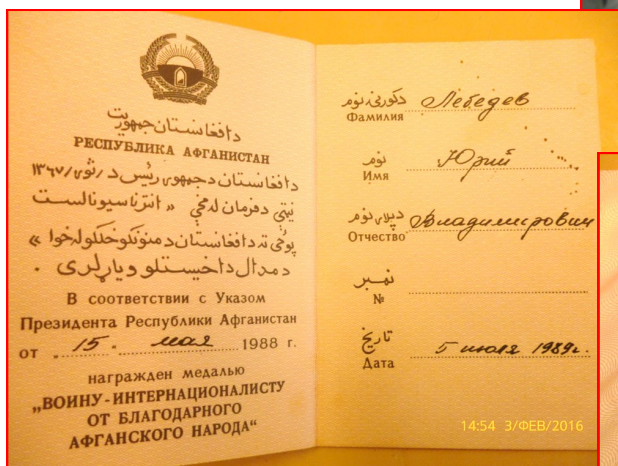 دافغانستان جمهوریت
РЕСПУБЛИКА АФГАНИСТАН
دافغانستان دجمهوری رئیس د ثور ۱۳۶۷
نیټې دفرمان له مخې « انترناسیونالست
پوځی ته دافغانستان دمننوکوخلکولخوا »
دمدال داخیستلو ویاړلری .
В соответствии с Указом
Президента Республики Афганистан
от „ 15 “ мая 1988 г.
награжден медалью
„ВОИНУ-ИНТЕРНАЦИОНАЛИСТУ
ОТ БЛАГОДАРНОГО
АФГАНСКОГО НАРОДА“
دکورنی نوم
Фамилия Лебедев
نوم
Имя Юрий
دپلار نوم
Отчество Владимирович
نمبر
№
تاریخ
Дата 5 июля 1989г.
14:54 3/ФЕВ/2016